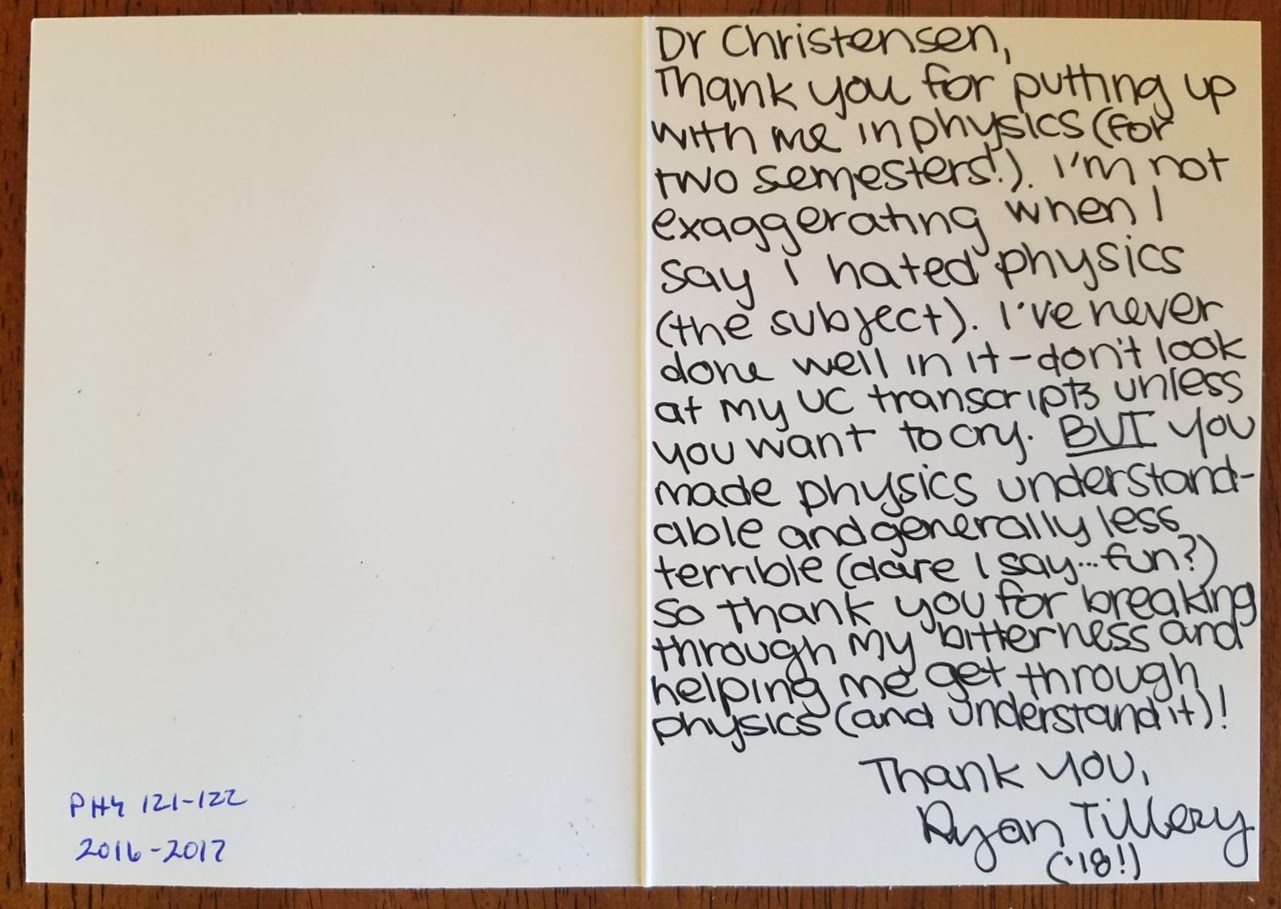 PHY 121-122
2016-2017
Dr Christensen,
Thank you for putting up
with me in physics (for
two semesters!). I'm not
exaggerating when I
say I hated physics
(the subject). I've never
done well in it - don't look
at my UC transcripts unless
you want to cry. BUT you
made physics understand-
able and generally less
terrible (dare I say... fun?)
So thank you for breaking
through my bitterness and
helping me get through
physics (and understand it)!
Thank you,
Ryan Tillery
('18!)